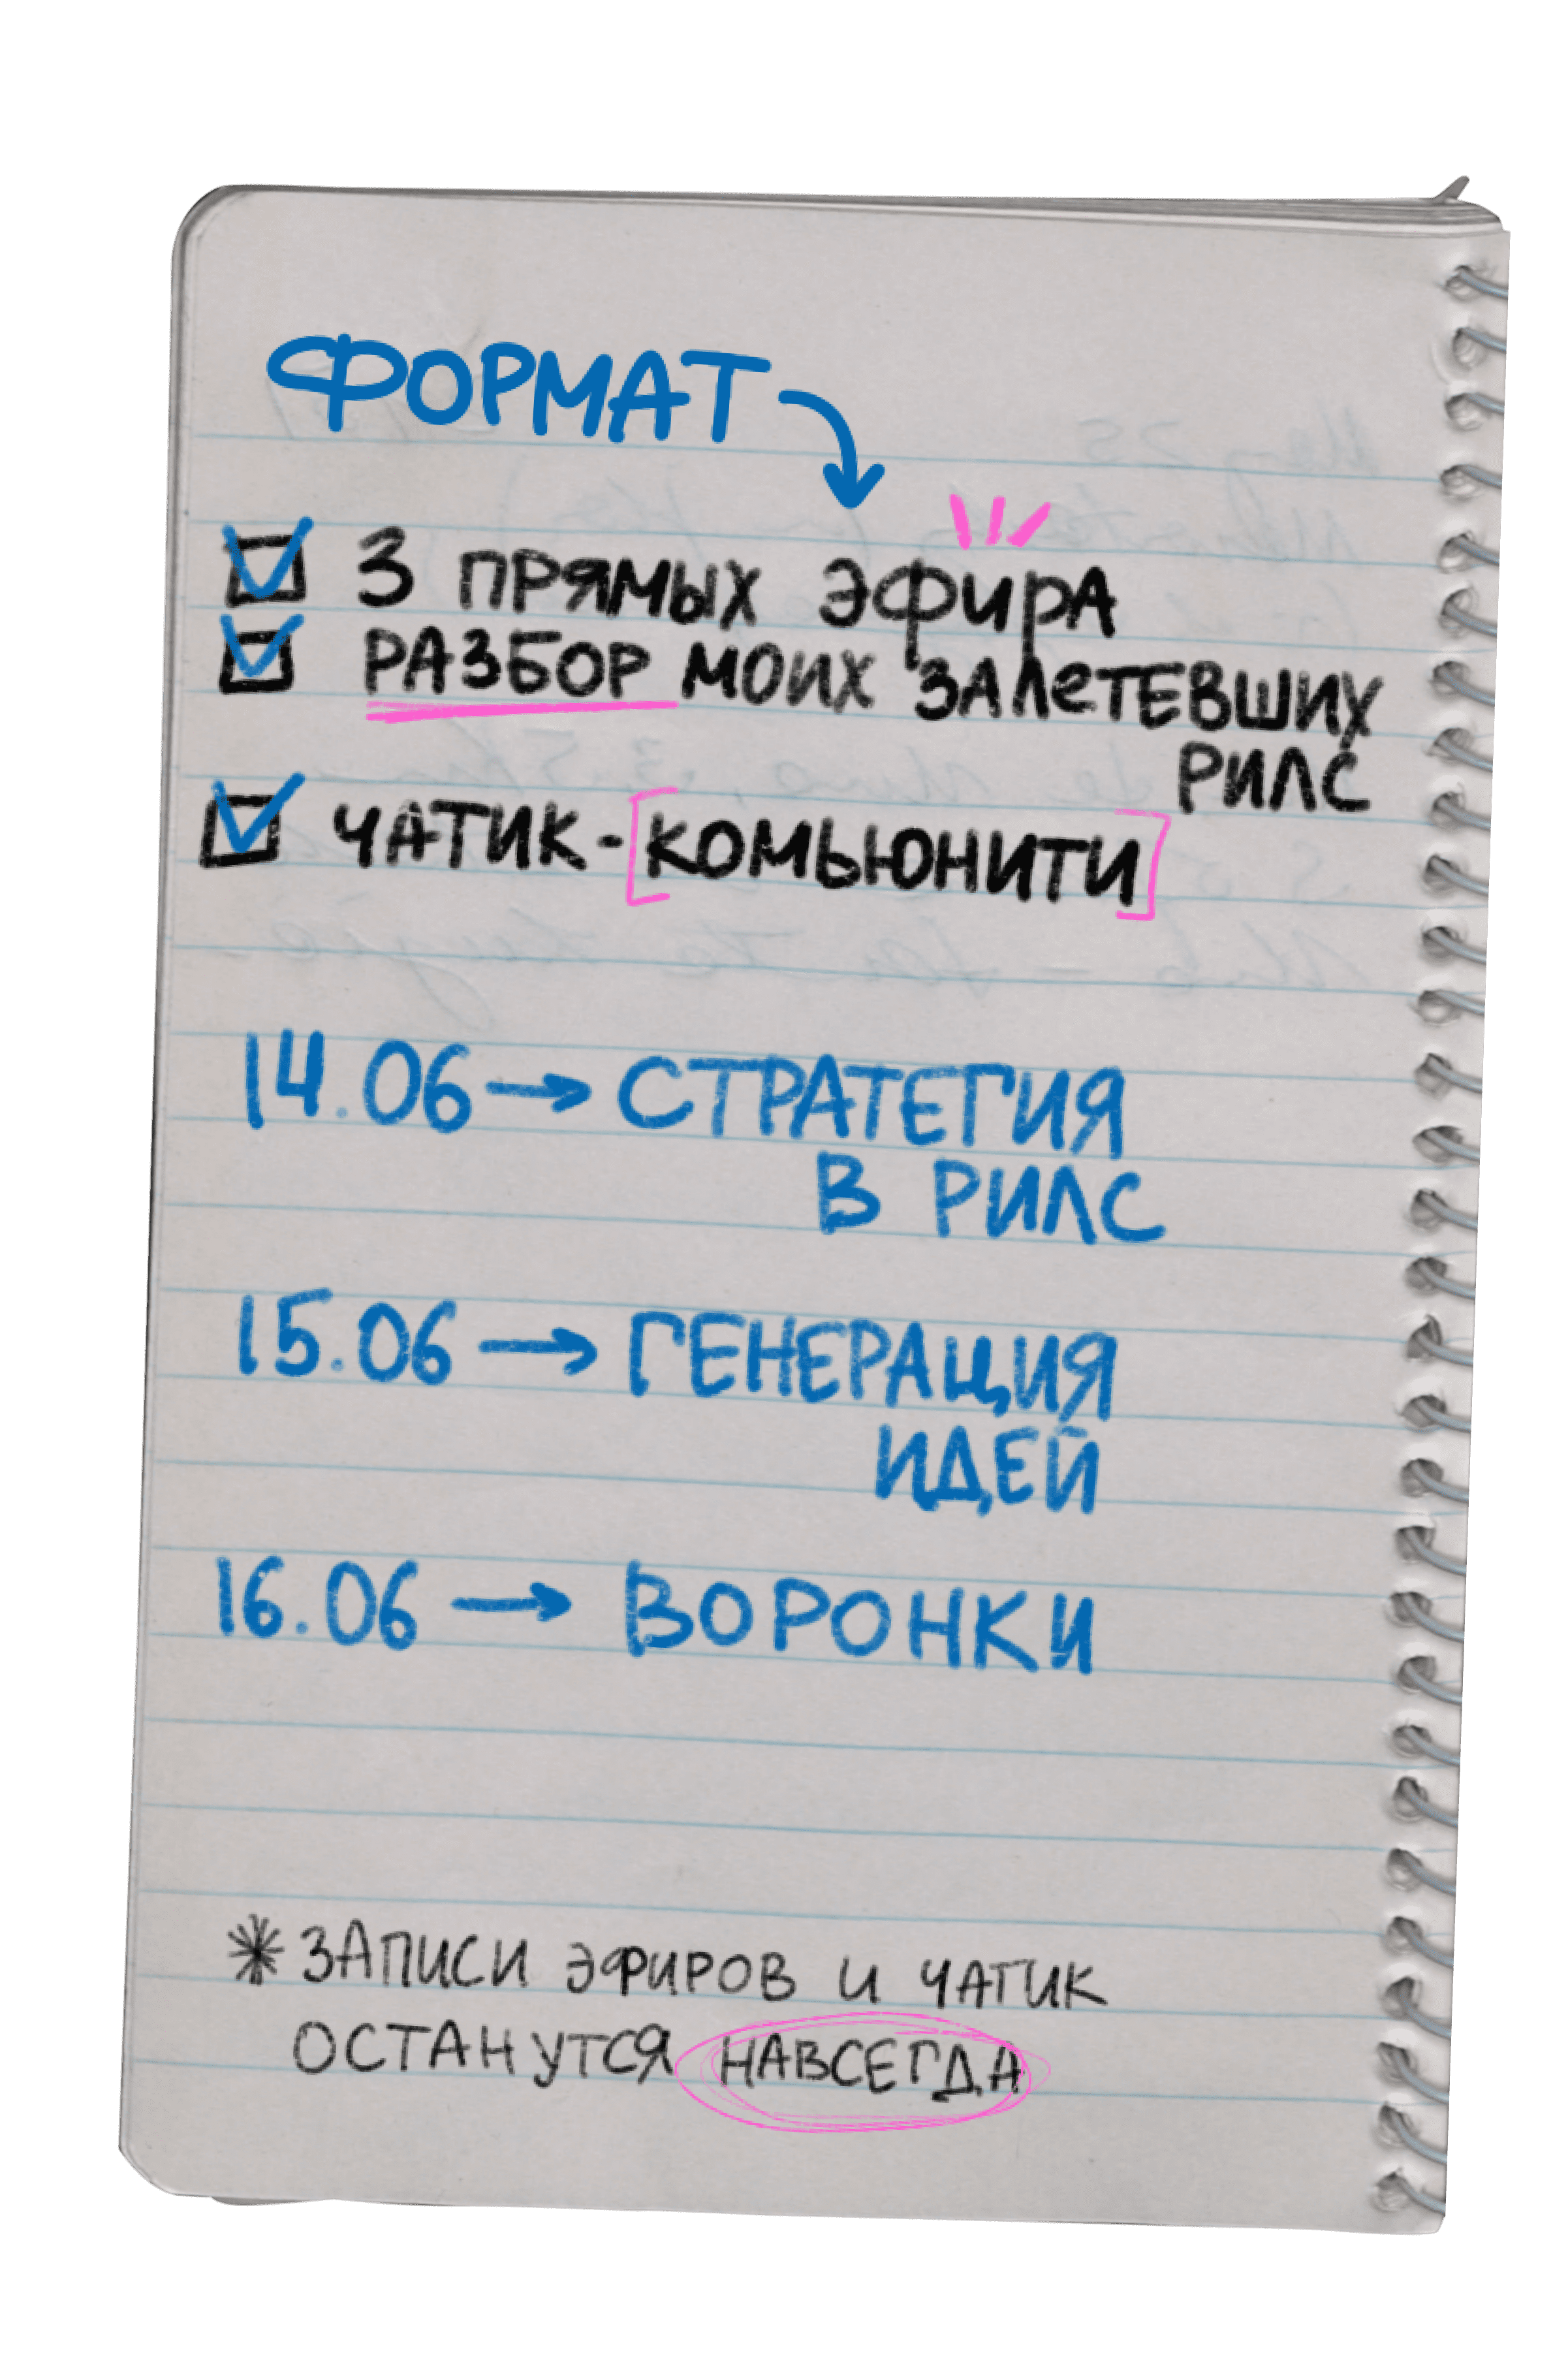 ФОРМАТ
3 ПРЯМЫХ ЭФИРА
РАЗБОР МОИХ ЗАЛЕТЕВШИХ
РИЛС
ЧАТИК-[КОМЬЮНИТИ]
14.06 → СТРАТЕГИЯ
В РИЛС
15.06 → ГЕНЕРАЦИЯ
ИДЕЙ
16.06 → ВОРОНКИ
* ЗАПИСИ ЭФИРОВ И ЧАТИК
ОСТАНУТСЯ НАВСЕГДА